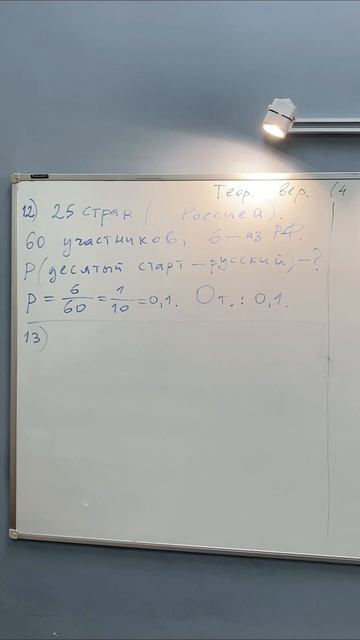 Теор. вер. (4
12) 25 стран (с Россией).
60 участников, 6 – из РФ.
P(десятый старт – русский) – ?
P = 6/60 = 1/10 = 0,1. От.: 0,1.
13)